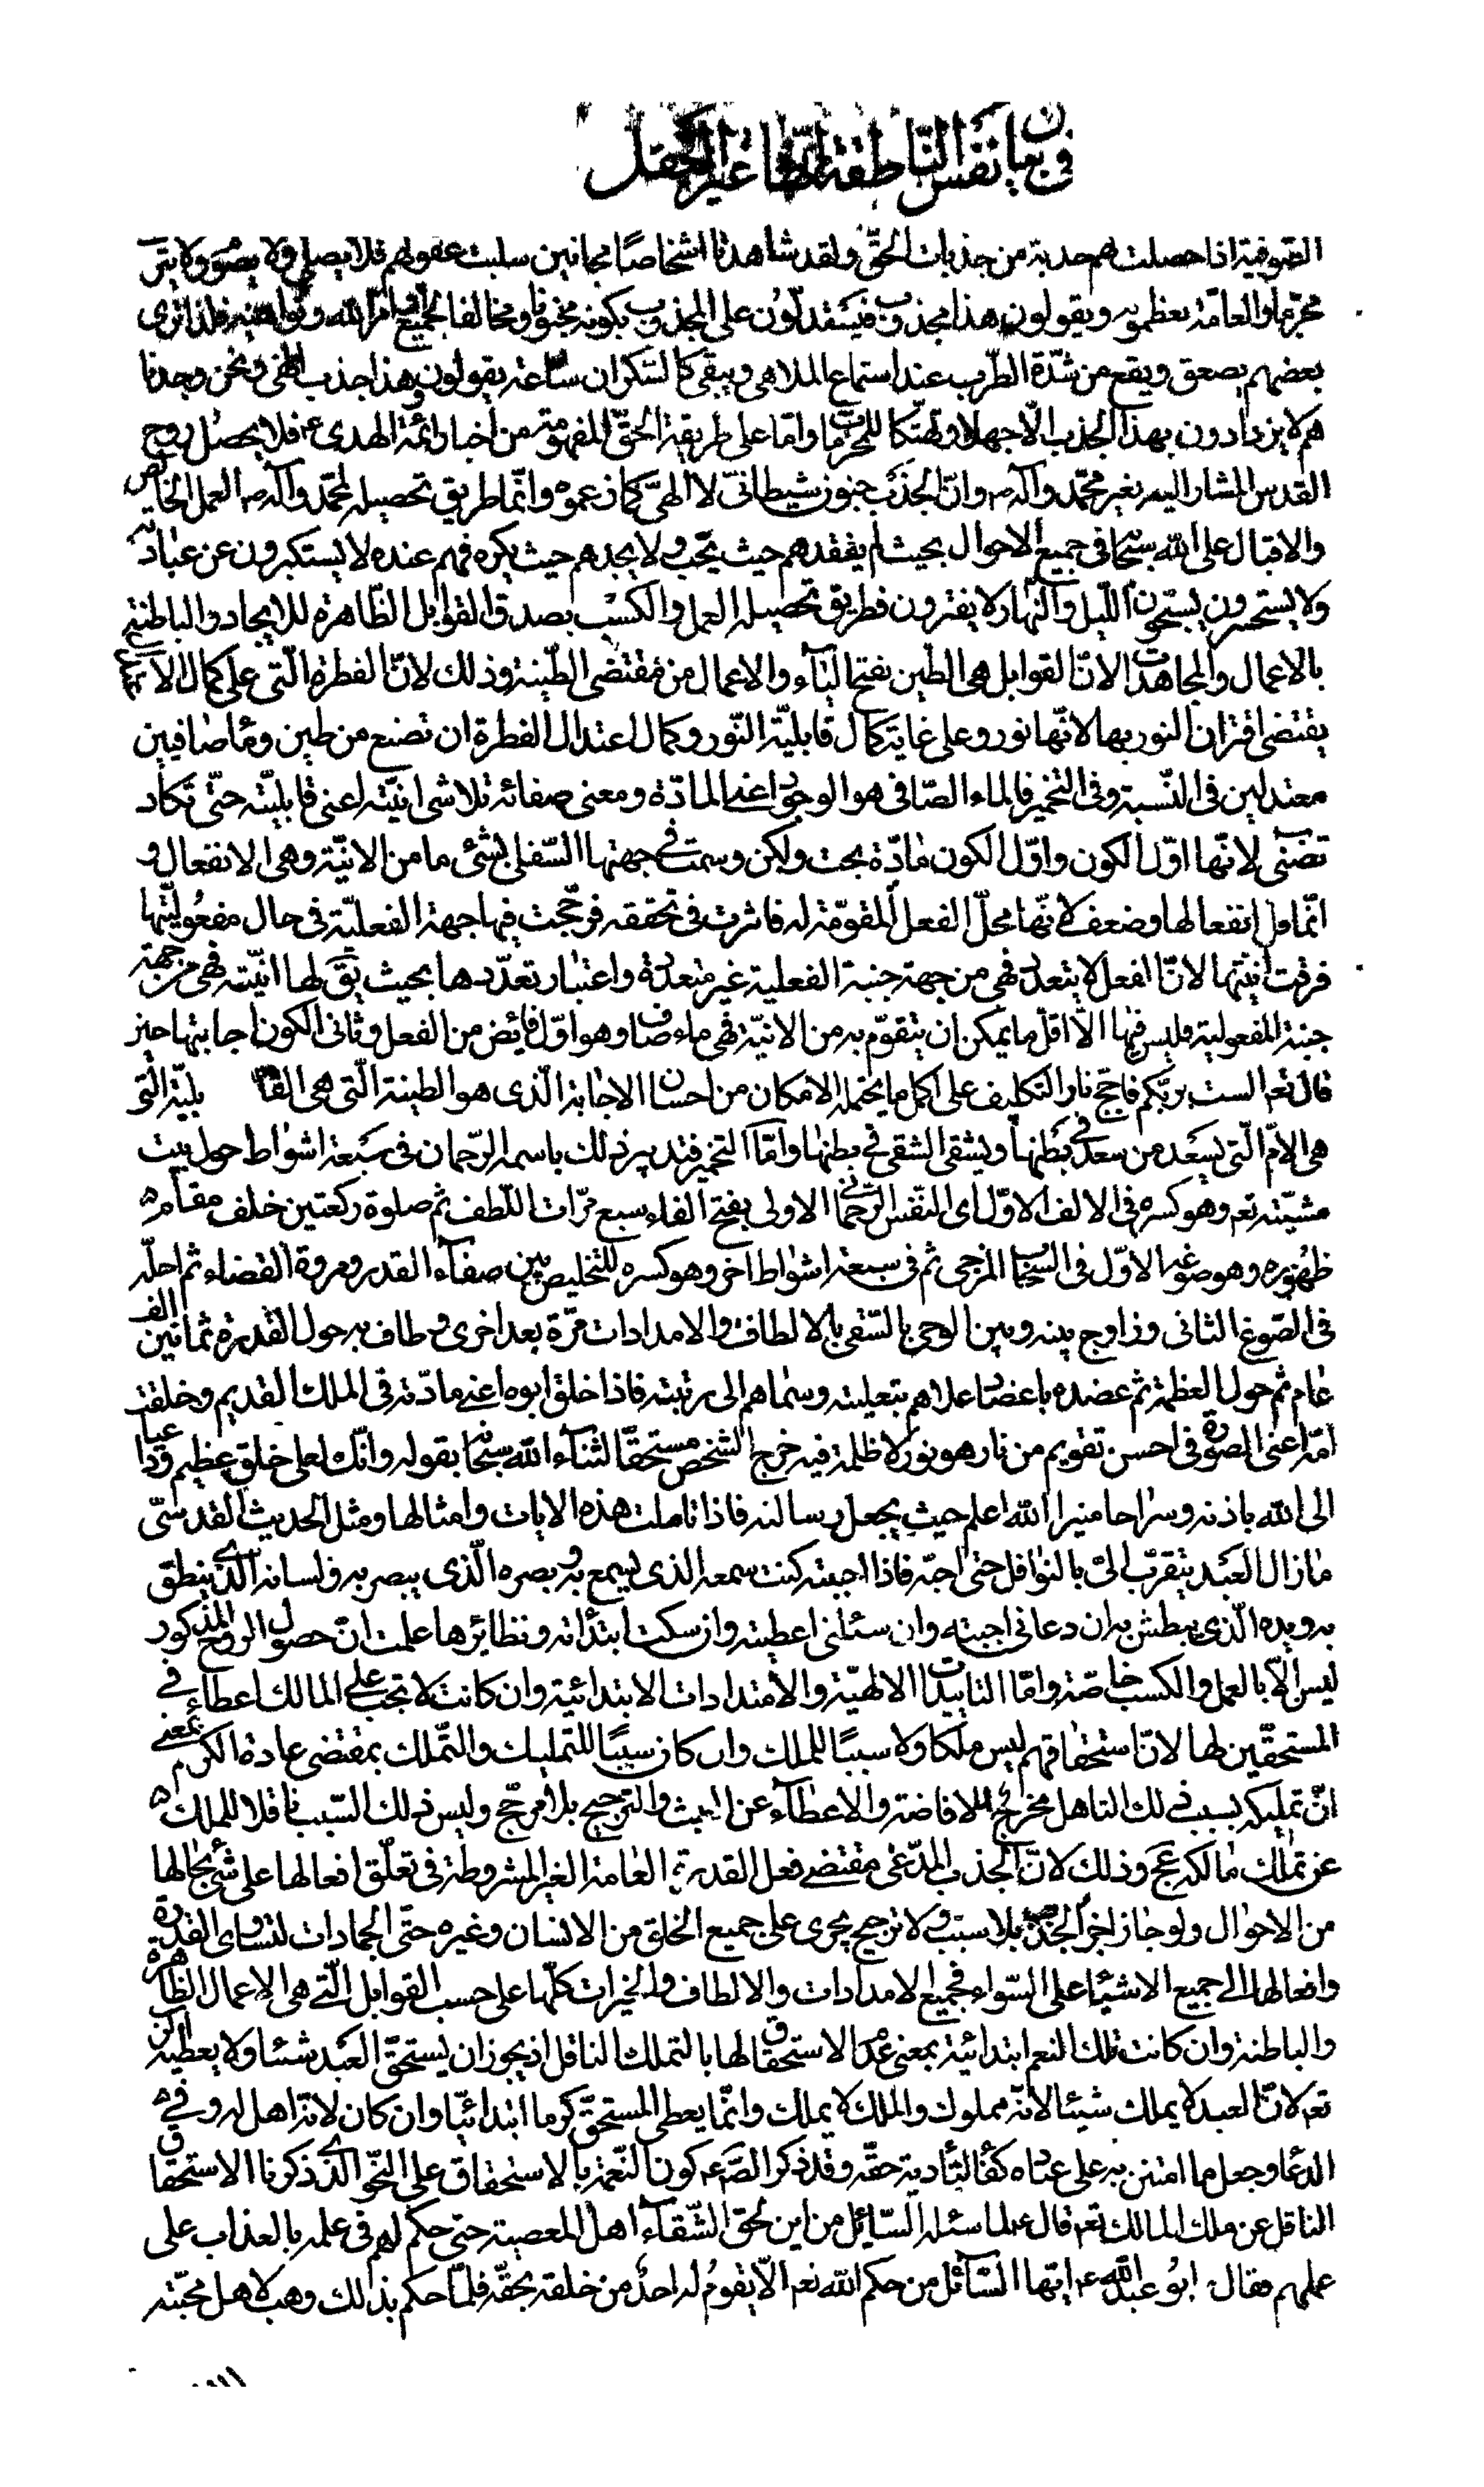 في بيان نفس الناطقة انها غير العقل
الصوفية اذا حصلت لهم جذبة من جذبات الحقّ ولقد شاهدنا اشخاصًا مجانين سلبت عقولهم فلا يصلي ولا يصوم ولا يترك
محرّما والعامّة يعظمونه ويقولون هذا مجذوب فيستدلّون على المجذوب بكونه مجنونا ومخالفا لجميع اوامر الله ونواهيه فلذا ترى
بعضهم يصعق ويقع من شدّة الطرب عند استماع الملاهي ويبقى كالسّكران ساعة يقولون وهذا جذب الهي ونحن وجدنا
هم لا يزدادون بهذا الجذب الّا جهلا وتهتّكا للمحرّمات واما على طريقة الحقّ المفهومة من اخبار ائمّة الهدى ع فلا يحصل روح
القدس المشار اليه بغير محمّد وآله ص وانّ الجذب جنون شيطانيّ لا الهيّ كما زعموه وانّما طريق تحصيله لمحمّد وآله ص العمل الخالص
والاقبال على الله سبحانه في جميع الاحوال بحيث لم يفقدهم حيث يحبّ ولا يجدهم حيث يكره فهم عنده لا يستكبرون عن عبادته
ولا يستحسرون يسبحون الليل والنهار لا يفترون فطريق تحصيله العمل والكسب بصدق القوابل الظاهرة للايجاد والباطنة
بالاعمال والمجاهدات الا انّ القوابل هي الطين بفتح الياء والاعمال من مقتضى الطينة وذلك لانّ الفطرة الّتي على كمال الاربع
يقتضي اقتران النور بها لانّها نور وعلى غاية كمال قابليّة النّور وكمال اعتدال الفطرة ان تصنع من طين وماء صافيين
معتدلين في النّسبة وفي التخمير فالماء الصّافي هو الوجود اعني المادّة ومعنى صفائه تلاشي انيّته اعني قابليّته حتّى تكاد
تضئ لانّها اوّل الكون واوّل الكون مادّة بحت ولكن وسمت في جهتها السّفلى بشئ ما من الانيّة وهي الانفعال و
انّما قل انفعالها وضعف لانّها محلّ الفعل المقوّمة له فاثرت في تحققه فرجّحت فيها جهة الفعليّة في حال مفعوليّتها
فرقت انيّتها لانّ الفعل لا يتعدد فهي من جهة جنبة الفعلية غير متعددة واعتبار تعدّدها بحيث يق لها انيّته فهي من جهة
جنبة المفعولية وليس فيها الّا اقلّ ما يمكن ان يتقوّم به من الانيّة فهي ماء صاف وهو اوّل فايض من الفعل وثاني الكون اجابتها حين
قال تع الست بربّكم فاجّج نار التكليف على اكمل ما يحتمله الامكان من احسان الاجابة الّذي هو الطينة الّتي هي القابليّة الّتي
هي الامّ الّتي يسعد من سعد في بطنها ويشقى الشقي في بطنها وامّا التخمير فتدبير ذلك باسمه الرّحمان في سبعة اشواط حول بيت
مشيّته تع وهو كسره في الالف الاوّل اي النّفس الرّحماني الاولى بفتح الفاء سبع مرّات اللّطف ثم صلوة ركعتين خلف مقام
ظهوره وهو صوغه الاوّل في السحاب المزجى ثم في سبعة اشواط اخر وهو كسره للتخليص بين صفاء القدر ومروة القضاء ثم احلّه
في الصّوغ الثاني وزاوج بينه وبين الوحي بالسّقي بالالطاف والامدادات مرّة بعد اخرى وطاف به حول القدرة ثمانين الف
عام ثم حول العظمة ثم عضده باعضاد اعلاهم بتعليته وسماهم الى رتبته فاذا خلق ابوه اعني مادّته في الملك القديم وخلقت
امّه اعني الصورة في احسن تقويم من نار هو نور لا ظلمة فيه خرج الشخص مستحقّا لثناء الله سبحانه بقوله وانّك لعلى خلق عظيم وداعيا
الى الله باذنه وسراجا منيرا الله اعلم حيث يجعل رسالته فاذا تاملت هذه الايات وامثالها ومثل الحديث القدسيّ
مازال العبد يتقرّب الىّ بالنوافل حتى احبّه فاذا احببته كنت سمعه الذي يسمع به وبصره الّذي يبصر به ولسانه الذي ينطق
به ويده الّذي يبطش به ان دعاني اجبته وان سئلني اعطيته وان سكت ابتدأته ونظائرها علمت انّ حصول الروح المذكور
ليس الّا بالعمل والكسب خاصّة وامّا التاييدات الالهيّة والامتدادات الابتدائية وان كانت لا تجب على المالك اعطاء في
المستحقّين لها لانّ استحقاقهم ليس ملكا ولا سببًا للملك وان كان سببًا للتمليك والتّملك بمقتضى عادة الكرم بمعنى
انّ تمليكه بسبب ذلك التاهل مخرج للافاضة والاعطاء عن العبث والترجيح بلا مرجّح وليس ذلك السّبب ناقلا للملك
عن تملك مالكه عج وذلك لانّ الجذب المدّعى مقتضى فعل القدرة العامة الغير المشروطة في تعلّق افعالها على شئ بحالها
من الاحوال ولو جاز اجراء الجذب بلا سبب ولا ترجيح يجري على جميع الخلق من الانسان وغيره حتّى الجمادات لتساوى القدرة
وافعالها الى جميع الاشياء على السّواء فجميع الامدادات والالطاف والخيرات كلّها على حسب القوابل الّتي هي الاعمال الظاهرة
والباطنة وان كانت تلك النعم ابتدائية بمعنى عدم الاستحقاق لها بالتملك الناقل اذ يجوز ان يستحقّ العبد شيئا ولا يعطيه
تع لانّ العبد لا يملك شيئا لانّه مملوك والملك لا يملك وانّما يعطي المستحقّ كرما ابتدائيّا وان كان لانّه اهل له وفي
الدعاء وجعل ما امتنن به على عباده كفأ لتأدية حقّه وقد ذكر الصّ ع كون النّعمة بالاستحقاق على النّحو الّذي ذكرنا الاستحقاق
الناقل عن ملك المالك تع قال ع لما سئله السّائل من اين لحق الشّقاء اهل المعصية حتى حكم لهم في علمه بالعذاب على
عملهم فقال ابو عبد الله ع ايّها السّائل من حكم الله تع الّا يقوم له احد من خلقه بحقّه فلمّا حكم بذلك وهب لاهل محبّته